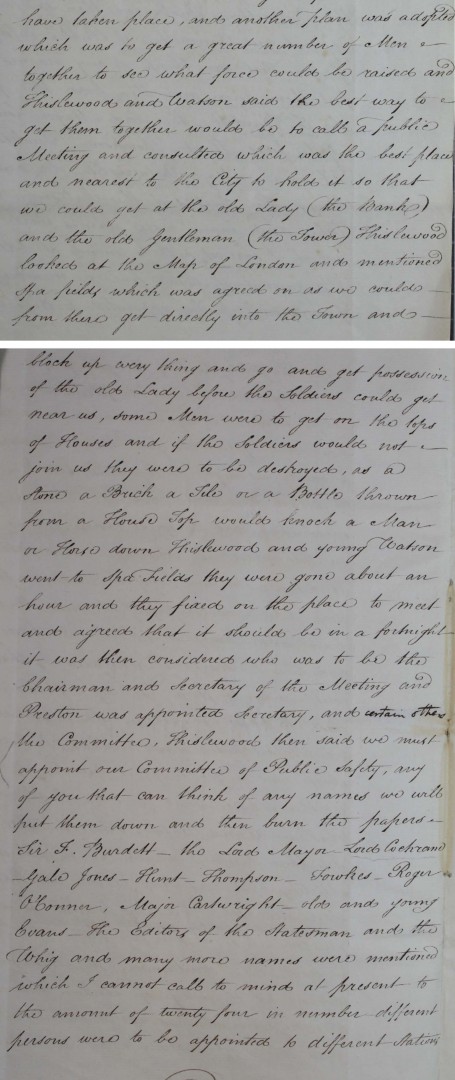 have taken place, and another plan was adopted
which was to get a great number of Men
together to see what force could be raised and
Thislewood and Watson said the best way to
get them together would be to call a public
Meeting and consulted which was the best place
and nearest to the City to hold it so that
we could get at the old Lady (the Bank)
and the old Gentleman (the Tower) Thislewood
looked at the Map of London and mentioned
Spa fields which was agreed on as we could
from there get directly into the Town and
block up every thing and go and get possession
of the old Lady before the Soldiers could get
near us, some Men were to get on the tops
of Houses and if the Soldiers would not
join us they were to be destroyed, as a
Stone a Brick a Tile or a Bottle thrown
from a House Top would knock a Man
or Horse down Thislewood and young Watson
went to Spa Fields they were gone about an
hour and they fixed on the place to meet
and agreed that it should be in a fortnight
it was then considered who was to be the
Chairman and Secretary of the Meeting and
Preston was appointed Secretary, and certain others
the Committee, Thislewood then said we must
appoint our Committee of Public Safety, any
of you that can think of any names we will
put them down and then burn the papers
Sir F. Burdett - the Lord Mayor - Lord Cochrane
- Gale Jones - Hunt - Thompson - Fowkes - Roger
O'Conner, Major Cartwright - old and young
Evans - The Editors of the Statesman and the
Whig and many more names were mentioned
which I cannot call to mind at present to
the amount of twenty four in number different
persons were to be appointed to different Stations